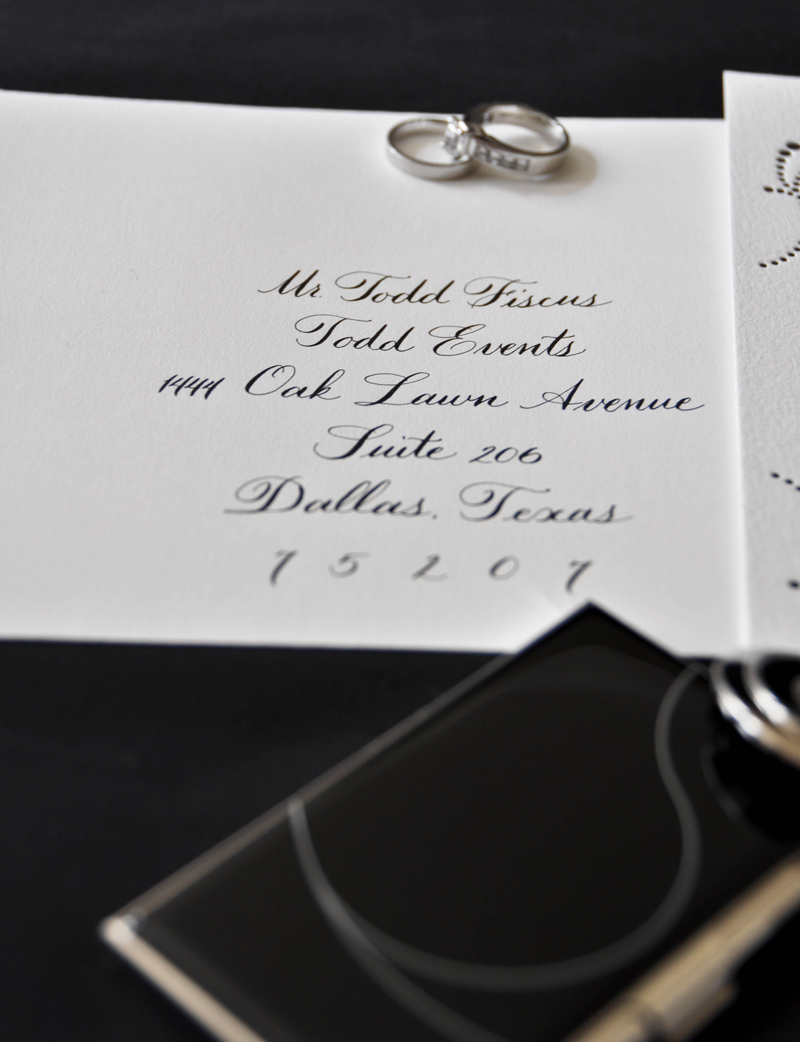 Mr. Todd Fiscus
Todd Events
1444 Oak Lawn Avenue
Suite 206
Dallas, Texas
75207